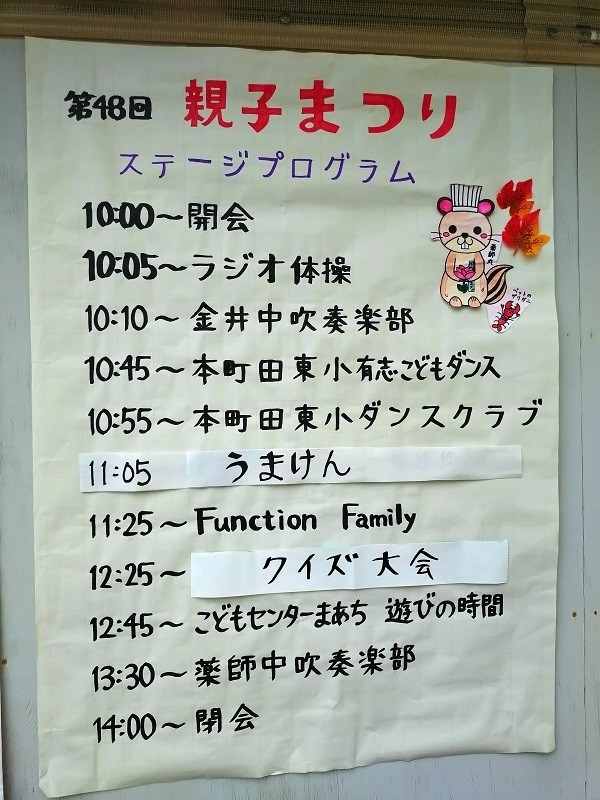 第48回 親子まつり
ステージプログラム
10:00～開会
10:05～ラジオ体操
10:10～金井中吹奏楽部
10:45～本町田東小有志こどもダンス
10:55～本町田東小ダンスクラブ
11:05 うまけん
11:25～Function Family
12:25～クイズ大会
12:45～こどもセンターまあち 遊びの時間
13:30～薬師中吹奏楽部
14:00～閉会
薬師丸
ペットの